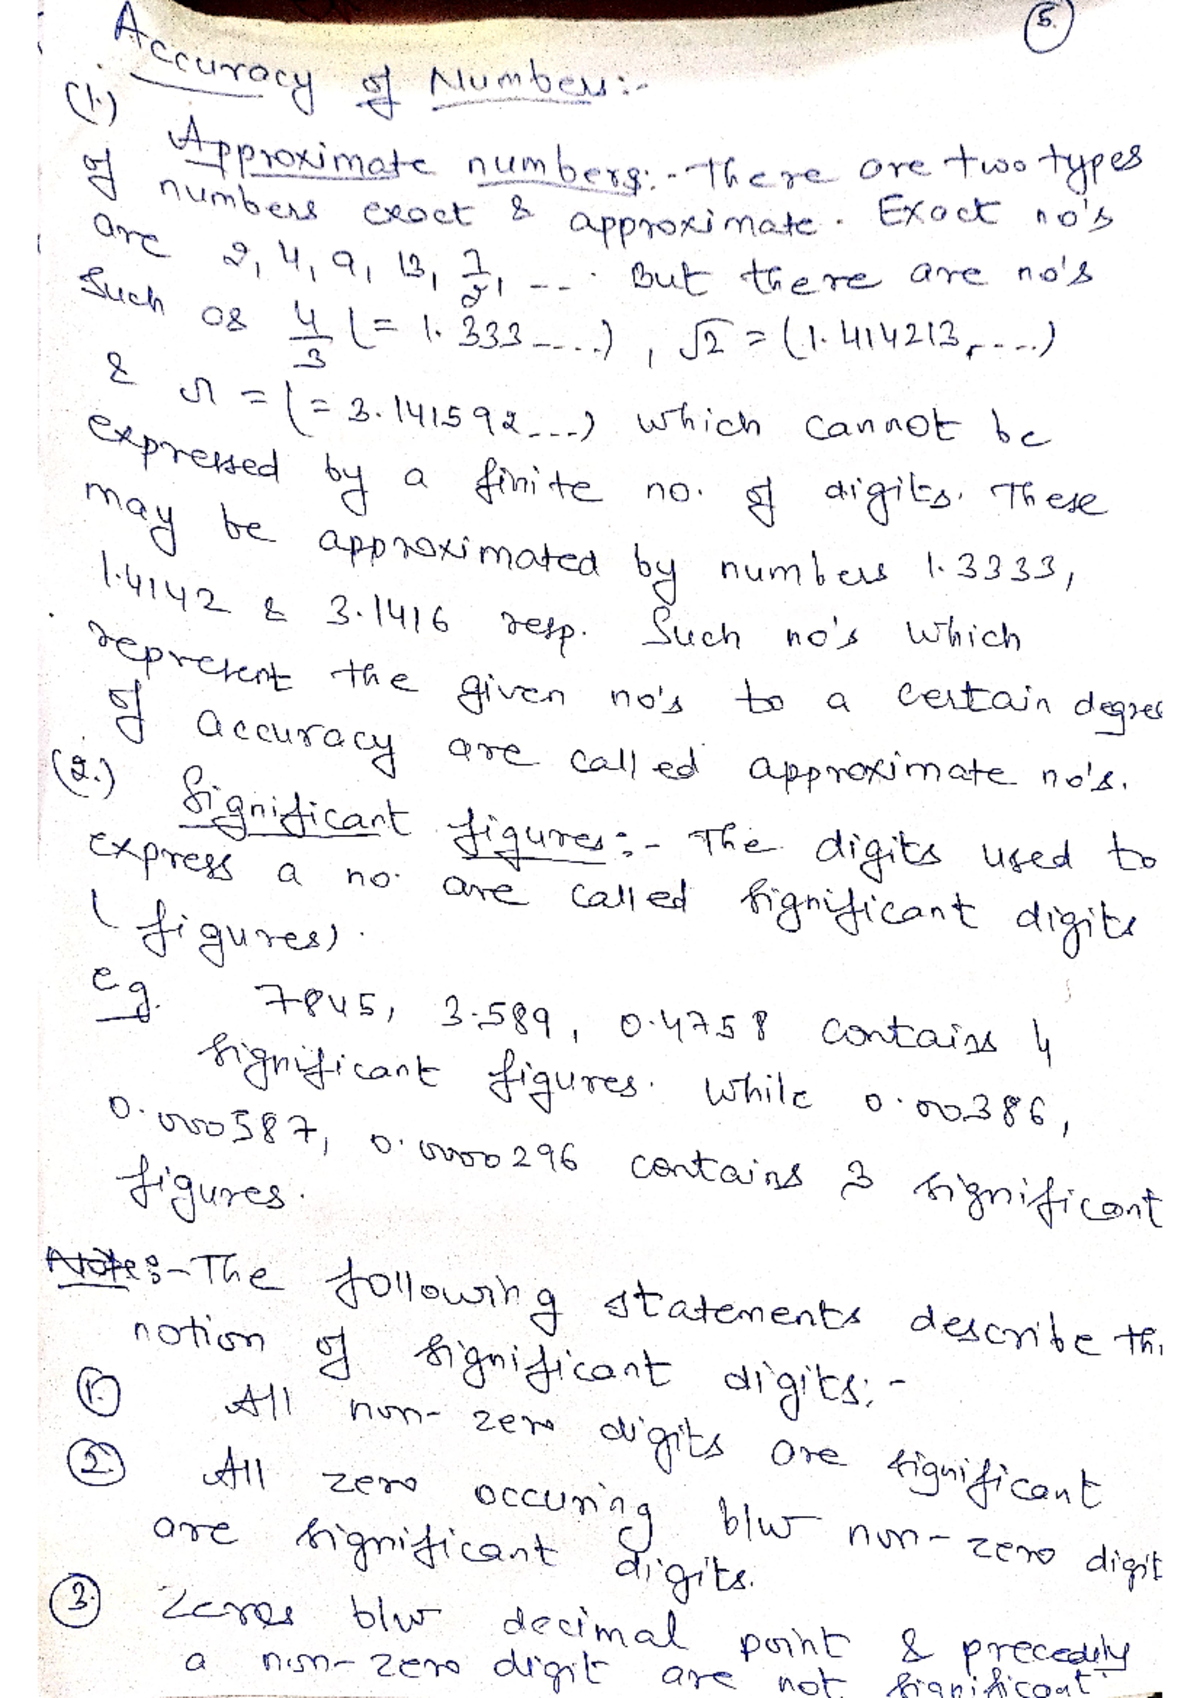 5.
Accuracy of Numbers:-
(1.) Approximate numbers:- There are two types
of numbers exact & approximate. Exact no's
are 2, 4, 9, 13, 7/2, --. But there are no's
Such as 4/3 (= 1.333----), √2 = (1.414213,----)
& π = (= 3.141592---) which cannot be
expressed by a finite no. of digits. These
may be approximated by numbers 1.3333,
1.4142 & 3.1416 resp. Such no's which
represent the given no's to a certain degree
of accuracy are called approximate no's.
(2.) Significant figures:- The digits used to
express a no. are called significant digits
(figures).
eg. 7845, 3.589, 0.4758 contains 4
significant figures. While 0.00386,
0.000587, 0.0000296 contains 3 significant
figures.
Note:- The following statements describe th
notion of significant digits:-
1. All non-zero digits are significant
2. All zero occuring b/w non-zero digit
are significant digits.
3. Zeros b/w decimal point & preceding
a non-zero digit are not significant